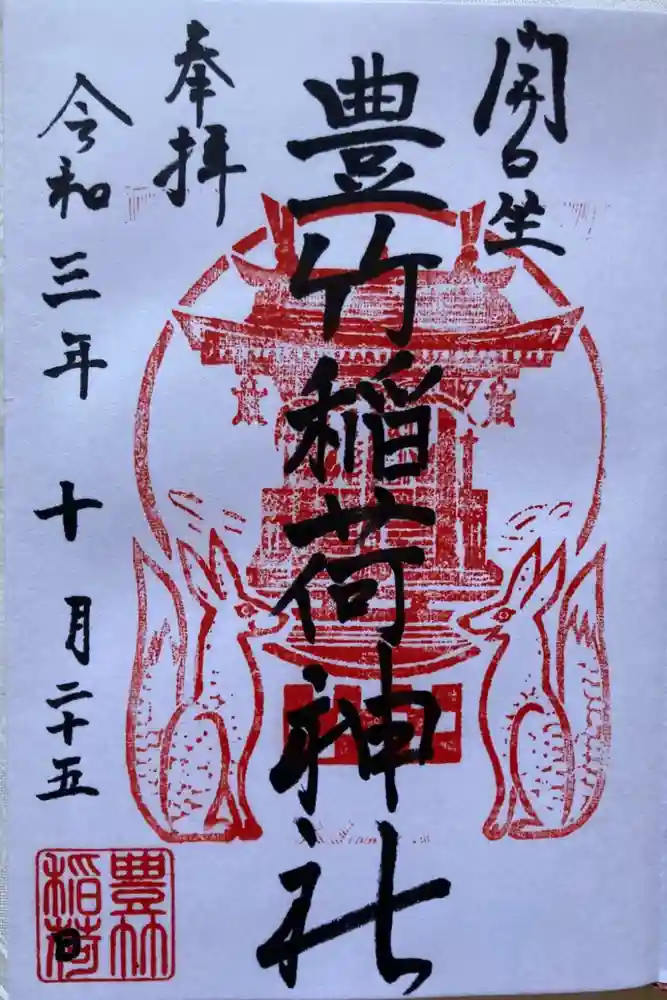 開口坐
豊竹稲荷神社
奉拝
令和三年十月二十五
日
豊竹
稲荷